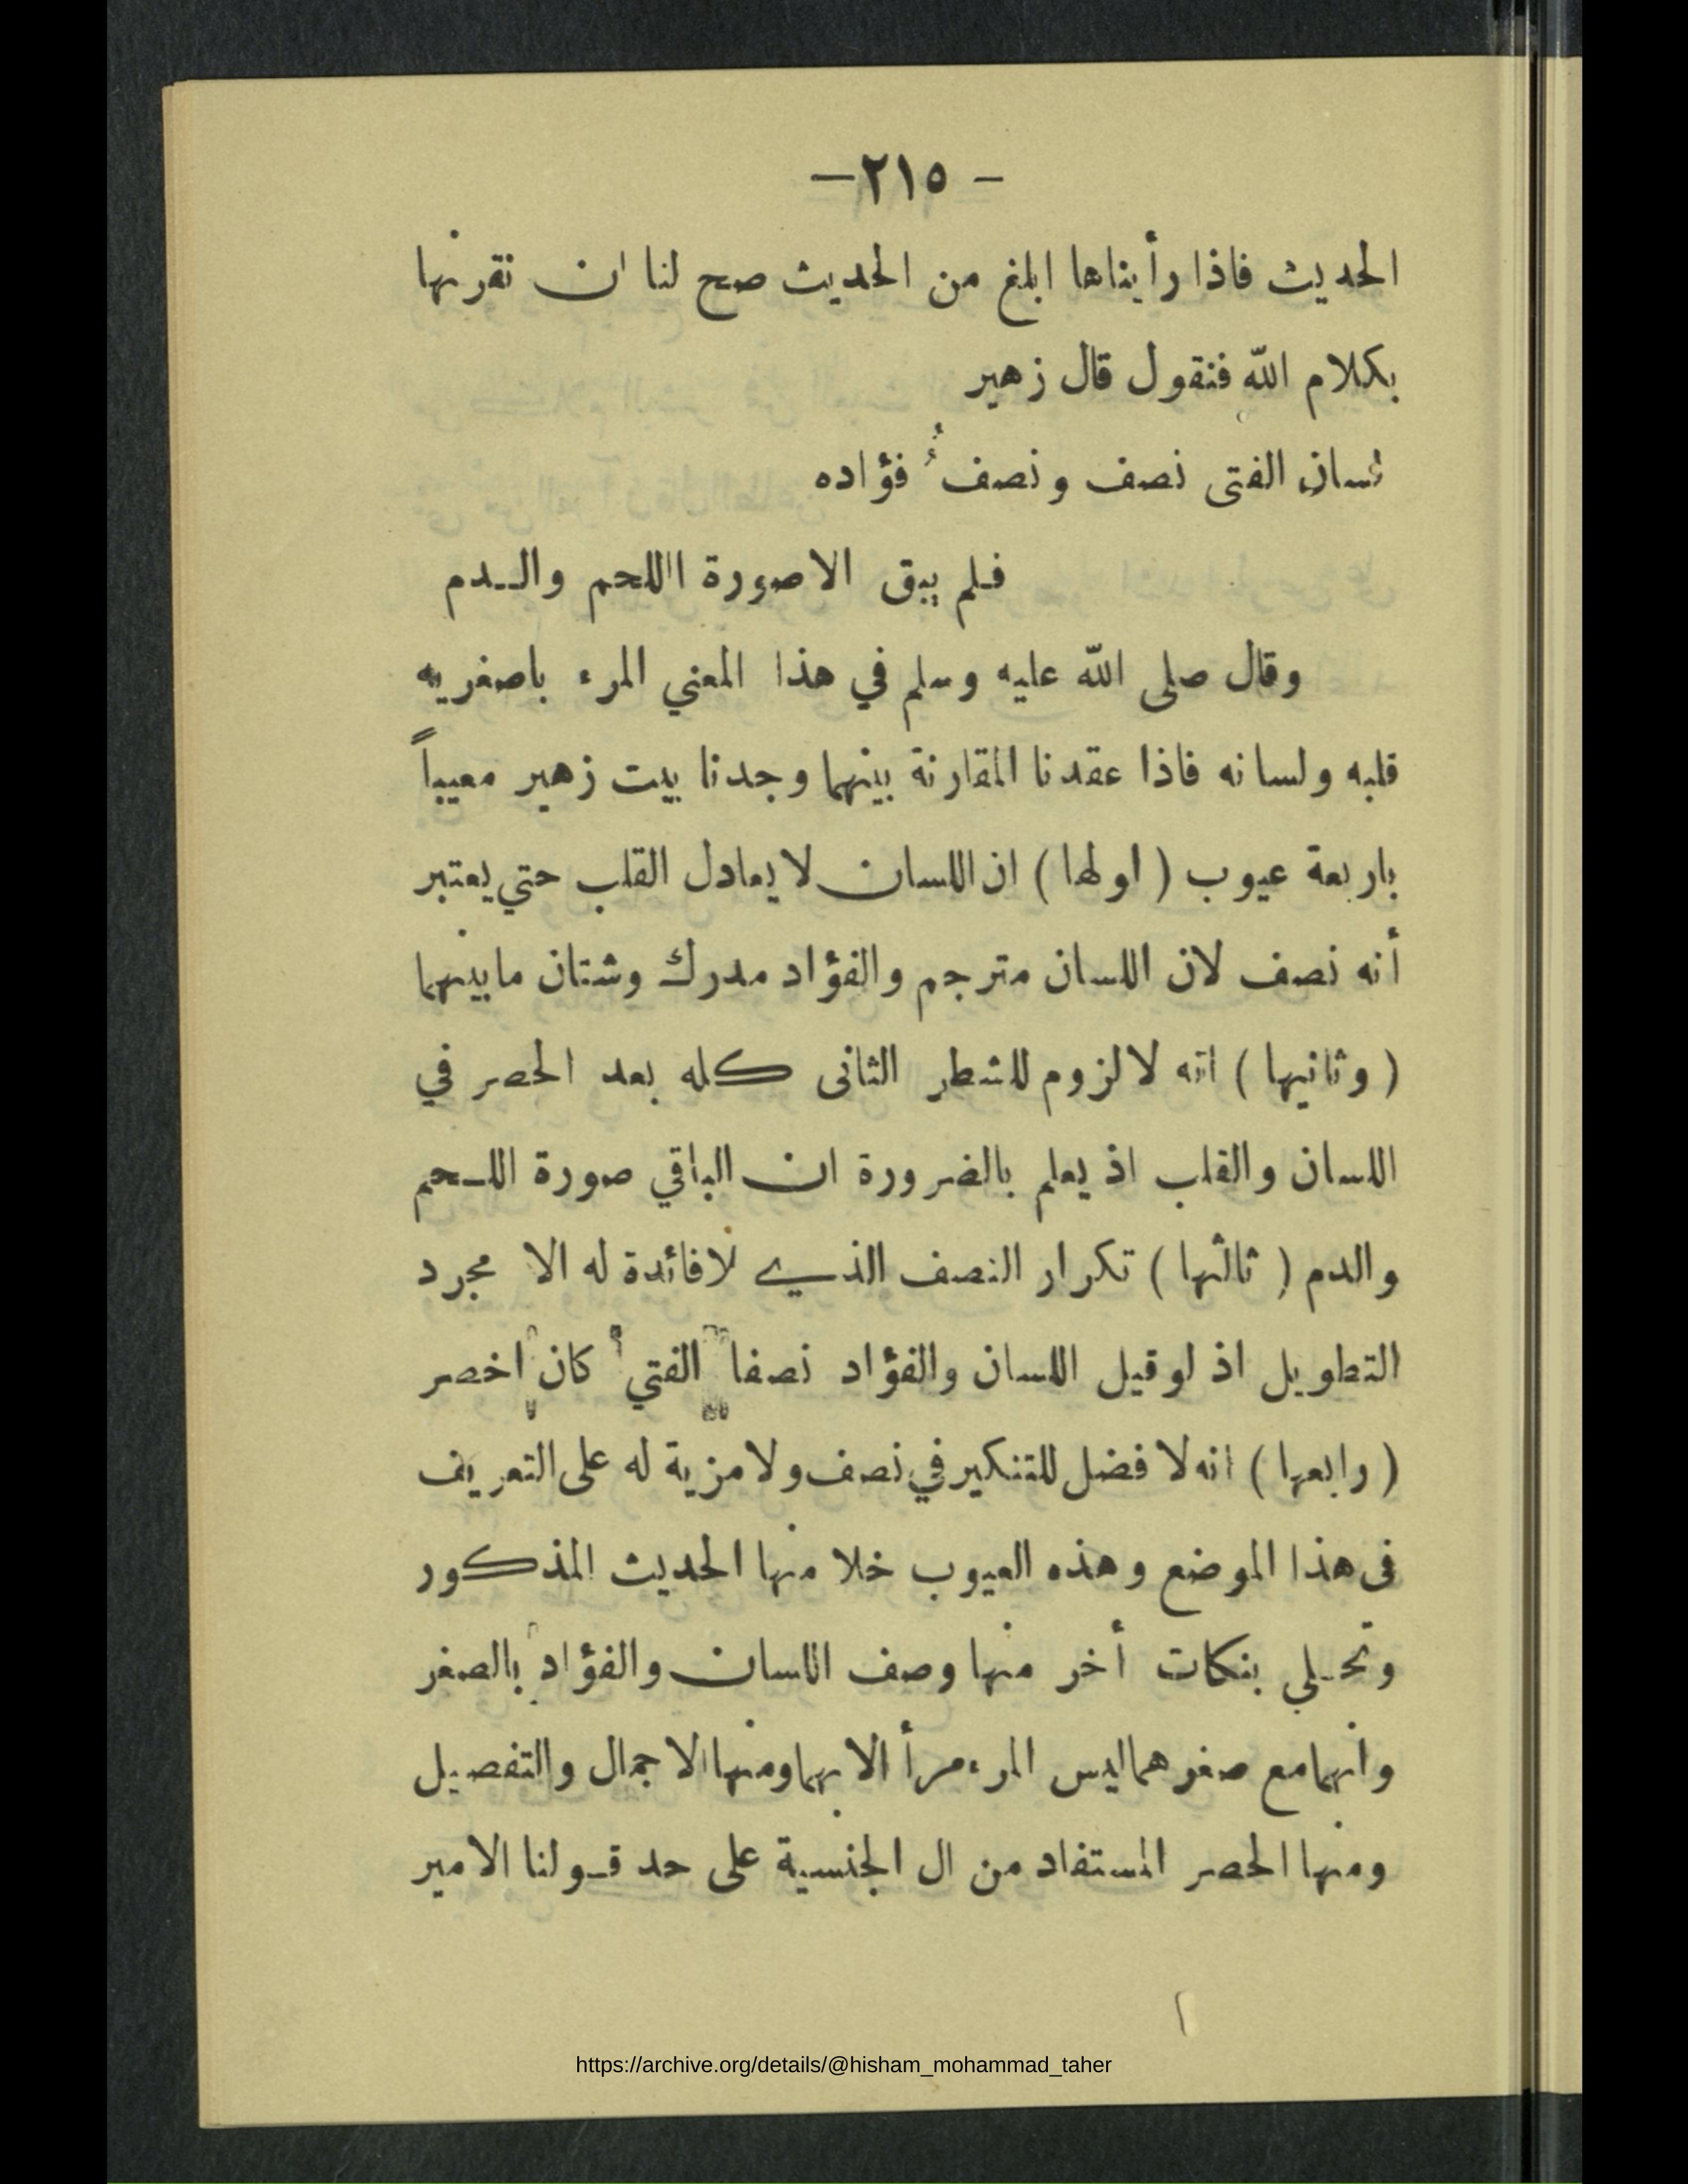 - ٢١٥ -
الحديث فاذا رأيناها ابلغ من الحديث صح لنا ان نقرنها
بكلام الله فنقول قال زهير
لسان الفتى نصف ونصفٌ فؤاده
فلم يبق الا صورة االلحم والـدم
وقال صلى الله عليه وسلم في هذا المعني المرء باصغريه
قلبه ولسانه فاذا عقدنا المقارنة بينهما وجدنا بيت زهير معيباً
باربعة عيوب ( اولها ) ان اللسان لا يعادل القلب حتي يعتبر
أنه نصف لان اللسان مترجم والفؤاد مدرك وشتان ما بينهما
( وثانيها ) انه لا لزوم للشطر الثانى كله بعد الحصر في
اللسان والقلب اذ يعلم بالضرورة ان الباقي صورة اللـحم
والدم ( ثالثها ) تكرار النصف الذي لا فائدة له الا مجرد
التطويل اذ لو قيل اللسان والفؤاد نصفا الفتي كان اخصر
( رابعها ) انه لا فضل للتنكير في نصف ولا مزية له على التعريف
فى هذا الموضع وهذه العيوب خلا منها الحديث المذكور
وتحـلي بنكات أخر منها وصف اللسان والفؤاد بالصغر
وانهما مع صغرهما ليس المرء مرأ الا بهما ومنها الاجمال والتفصيل
ومنها الحصر المستفاد من ال الجنسية على حد قـولنا الامير
https://archive.org/details/@hisham_mohammad_taher